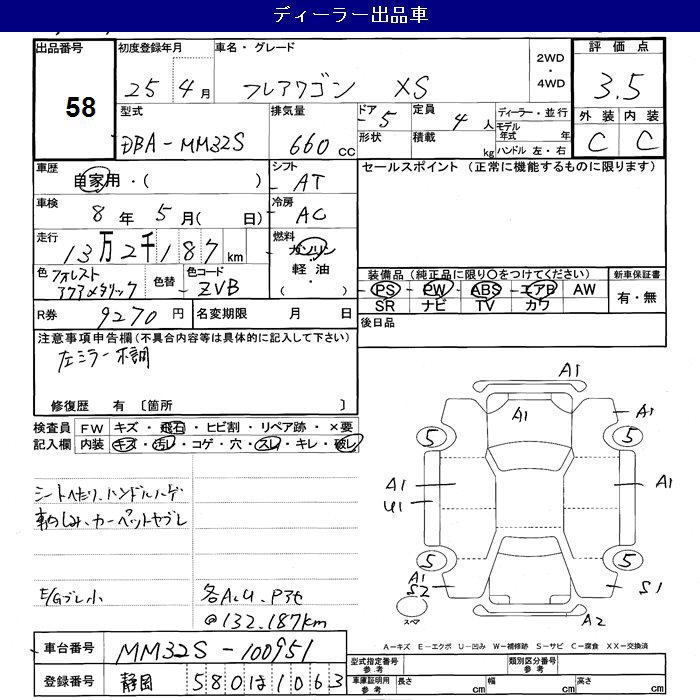 ディーラー出品車
出品番号 初度登録年月 車名・グレード 2WD ・ 4WD 評価点
58 25年4月 フレアワゴン XS 3.5
型式 排気量 ドア 定員 ディーラー・並行 外装 内装
DBA-MM32S 660cc 5 4人 モデル年式 年 C C
形状 積載 kg ハンドル 左・右
車歴 自家用・( ) シフト AT セールスポイント (正常に機能するものに限ります)
車検 8年5月( 日) 冷房 AC
走行 13万2千187km 燃料 ガソリン
軽油
( ・ )
色 フォレストアクアメタリック 色替 色コード ZVB
装備品(純正品に限り○をつけてください) 新車保証書
PS - PW - ABS - エアB - AW 有・無
SR ナビ TV カワ
R券 9270円 名変期限 月 日
後日品
注意事項申告欄(不具合内容等は具体的に記入して下さい)
左ミラー不調
修復歴 有 〔箇所 〕
検査員 FW キズ・飛石・ヒビ割・リペア跡・×要
記入欄 内装 キズ・汚レ・コゲ・穴・スレ・キレ・破レ
シートヘタリ、ハンドルハゲ
車内しみ、カーペットヤブレ
E/Gブレ小 各A.U.Pアセ
@132.187km
A1
A1 A1
5 5
A1 A1
U1
5 5
A1
S2 S1
スペア A2
A-キズ E-エクボ U-凹み W-補修跡 S-サビ C-腐食 XX-交換済
車台番号 MM32S-100951
登録番号 静岡 580は1063
型式指定番号 参考 類別区分番号 参考
車庫証明用 参考 長さ cm 幅 cm 高さ cm